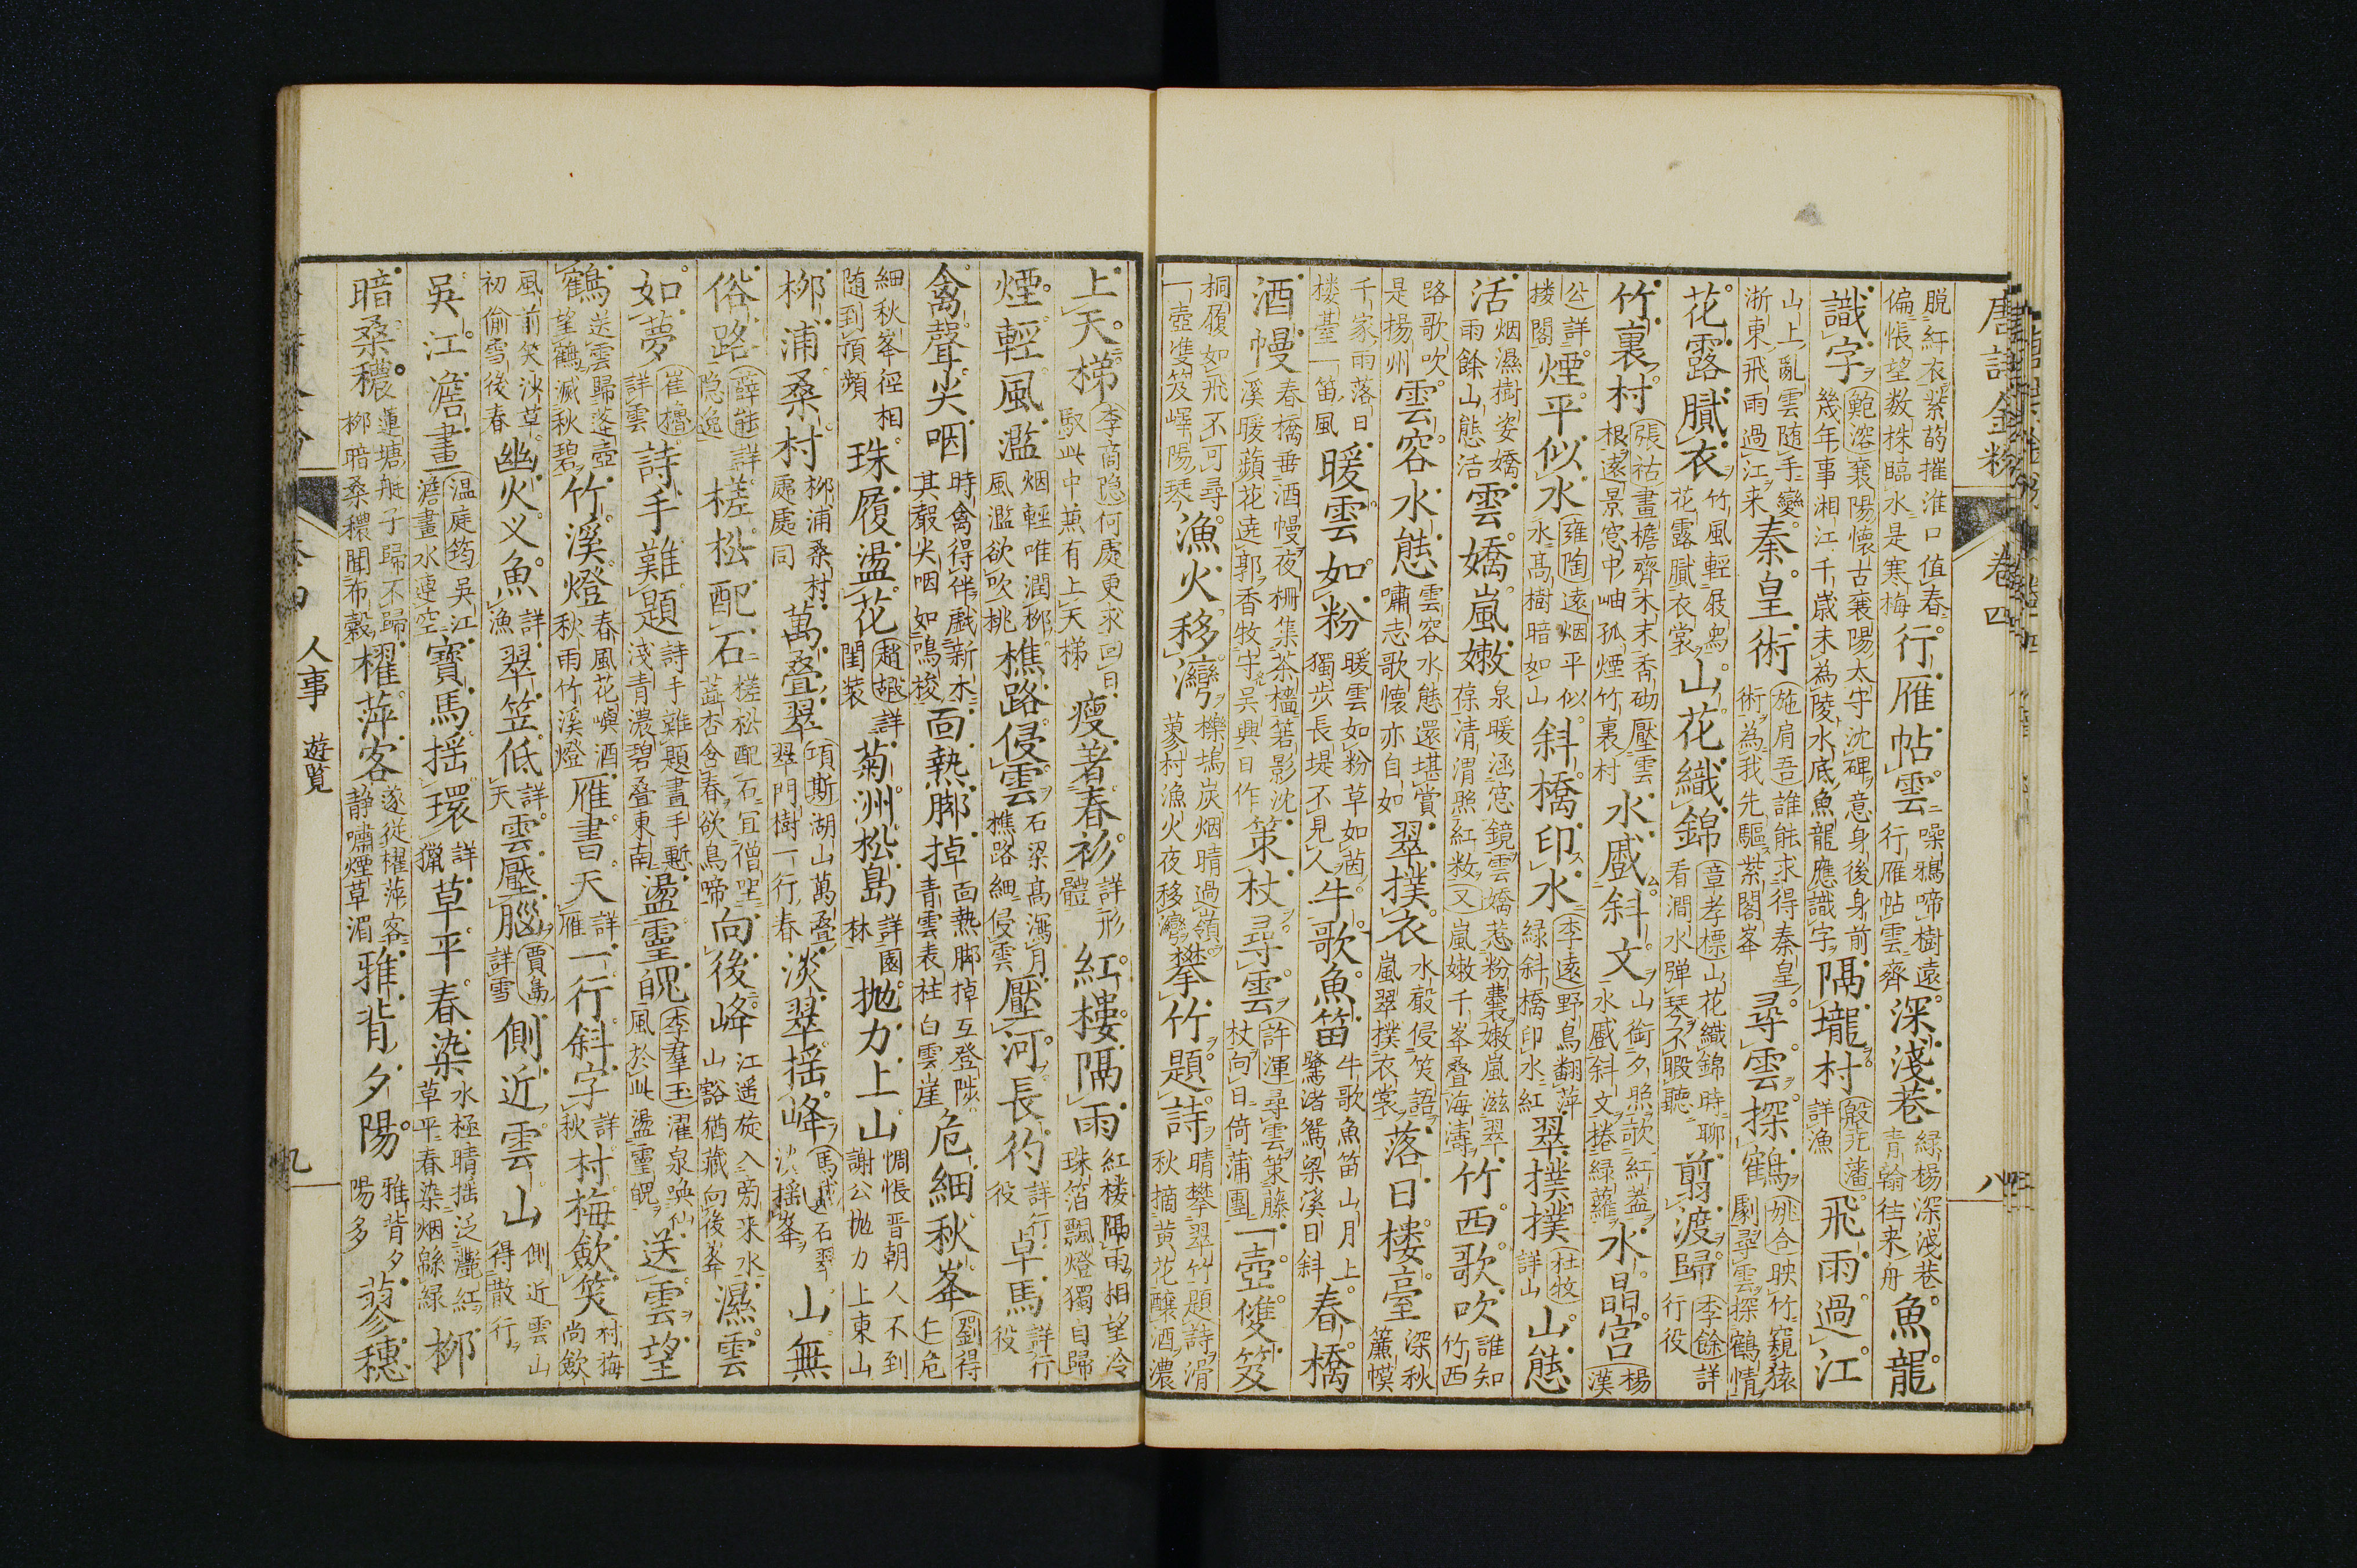 唐詩金粉 卷四 八
脱紅衣紫菂摧淮口值春偏悵望数株臨水是寒梅 行雁帖雲 噪鴉啼樹遠行雁帖雲齊 深淺巷 緑楊深淺巷青翰往来舟 魚龍
識字 鮑溶襄陽懷古襄陽太守沈碑意身後身前幾年事湘江千歳未為陵水底魚龍應識字 隔壠村 殷尭藩詳漁 飛雨過江
山上亂雲随手變浙東飛雨過江来 秦皇術 施肩吾誰能求得秦皇術為我先驅紫閣峯 尋雲探鶴 姚合映竹窺猿劇尋雲探鶴情
花露膩衣 竹風輕屐舃花露膩衣裳 山花織錦 章孝標山花織錦時聊看澗水弾琴不暇聽 翦渡歸 李餘詳行役
竹裏村 張祜畫檐齊木末香砌壓雲根遠景窓中岫孤煙竹裏村 水戲斜文 山銜夕照歌紅蓋水戲斜文捲緑蘿 水晶宫 楊漢
公詳楼閣 煙平似水 雍陶遠烟平似水髙樹暗如山 斜橋印水 李遠野鳥翻萍緑斜橋印水紅 翠撲撲 杜牧詳山 山態
活 烟濕樹姿嬌雨餘山態活 雲嬌嵐嫩 泉暖涵窓鏡雲嬌惹粉囊嫩嵐滋翠葆清渭照紅粧又嵐嫩千峯叠海濤 竹西歌吹 誰知竹西
路歌吹是揚州 雲容水態 雲容水態還堪賞嘯志歌懷亦自如 翠撲衣 水殿侵笑語嵐翠撲衣裳 落日楼臺 深秋簾幙
千家雨落日楼䑓一笛風 暖雲如粉 暖雲如粉草如茵獨歩長堤不見人 牛歌魚笛 牛歌魚笛山月上鷺渚鴛梁溪日斜 春橋
酒幔 春橋垂酒幔夜柵集茶檣箬影沈溪暖蘋花遶郭香牧守吳興日作 策杖尋雲 許渾尋雲策藤杖向日倚蒲團 一壺雙笈
桐履如飛不可尋一壺雙笈嶧陽琴 漁火移灣 櫟塢炭烟晴過嶺蓼村漁火夜移灣 攀竹題詩 晴攀翠竹題詩滑秋摘黄花釀酒濃
上天梯 李商隐何處更求回日馭此中兼有上天梯 瘦著春衫 詳形體 紅樓隔雨 紅楼隔雨相望冷珠箔飄燈獨自歸
煙輕風濫 烟輕唯潤栁風濫欲吹桃 樵路侵雲 石梁髙瀉月樵路細侵雲 壓河長彴 詳行役 卓馬 詳行役
禽聲尖咽 時禽得伴戲新木其聲尖咽如鳴梭 面熱脚掉 面熱脚掉互登陟青雲表柱白雲崖 危細秋峯 劉得仁危
細秋峯徑相随到頂頻 珠履盪花 趙嘏詳閨装 菊洲松島 詳園林 抛力上山 惆悵晋朝人不到謝公抛力上東山
栁浦桑村 栁浦桑村處處同 萬叠翠 項斯湖山萬叠翠門樹一行春 淡翠揺峰 馬戴石翠淡揺峯 山無
俗路 薛能詳隐逸 槎松配石 槎松配石宜僧坐蕋杏含春欲鳥啼 向後峰 江遥旋入旁来水山豁猶藏向後峯 濕雲
如夢 崔櫓詳雲 詩手難題 詩手難題畫手慙淺青濃碧叠東南 盪靈䰟 李羣玉濯泉喚仙風於此盪靈䰟 送雲望
鶴 送雲歸蓬壺望鶴滅秋碧 竹溪燈 春風花嶼酒秋雨竹溪燈 雁書天 詳雁 一行斜字 詳秋 村梅歛笑 村梅尚歛
風前笑沙草初偷雪後春 幽火乂魚 詳漁 翠笠低 詳天 雲壓腦 賈島詳雪 側近雲山 側近雲山得散行
吳江澹畫 温庭筠吳江澹畫水連空 寳馬揺環 詳獵 草平春染 水極晴揺泛灔紅草平春染烟緜緑 栁
暗桑穠 蓮塘艇子歸不歸栁暗桑穠聞布穀 櫂萍客 遂從櫂萍客静嘯煙草湄 雅背夕陽 雅背夕陽多 蓊穗
人事 遊覧 九